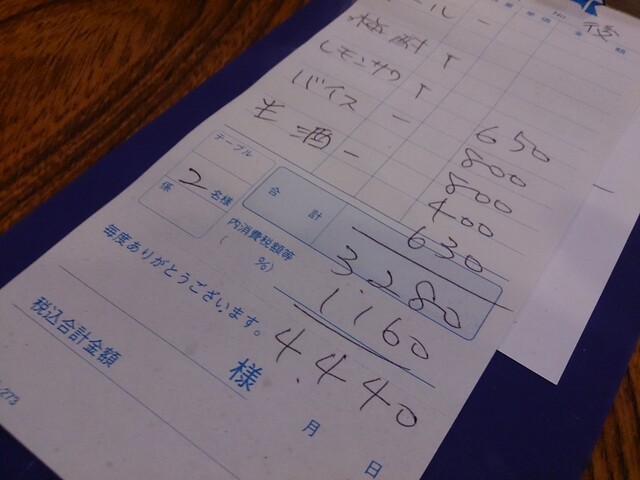 後
ール 一 650
レモンサワ T 800
バイス 一 400
酒 一 630
テーブル
係 2 名様
合 計 3280
内消費税額等
( %)
1160
4.440
毎度ありがとうございます。
様
税込合計金額
月 日